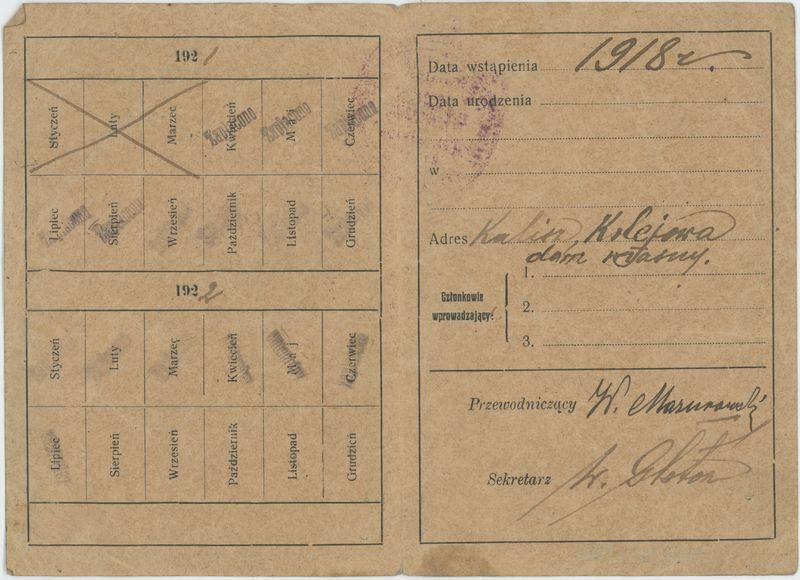 1921
Styczeń
Luty
Marzec
Kwiecień
Maj
Czerwiec
Zapłacono
Zapłacono
Zapłacono
Lipiec
Sierpień
Wrzesień
Październik
Listopad
Grudzień
Zapłacono
Zapłacono
1922
Styczeń
Luty
Marzec
Kwiecień
Maj
Czerwiec
Lipiec
Sierpień
Wrzesień
Październik
Listopad
Grudzień
Data wstąpienia 1918 r.
Data urodzenia
w
Adres Kalisz, Kolejowa
dom własny.
Członkowie
wprowadzający:
1.
2.
3.
Przewodniczący W.
Sekretarz W.